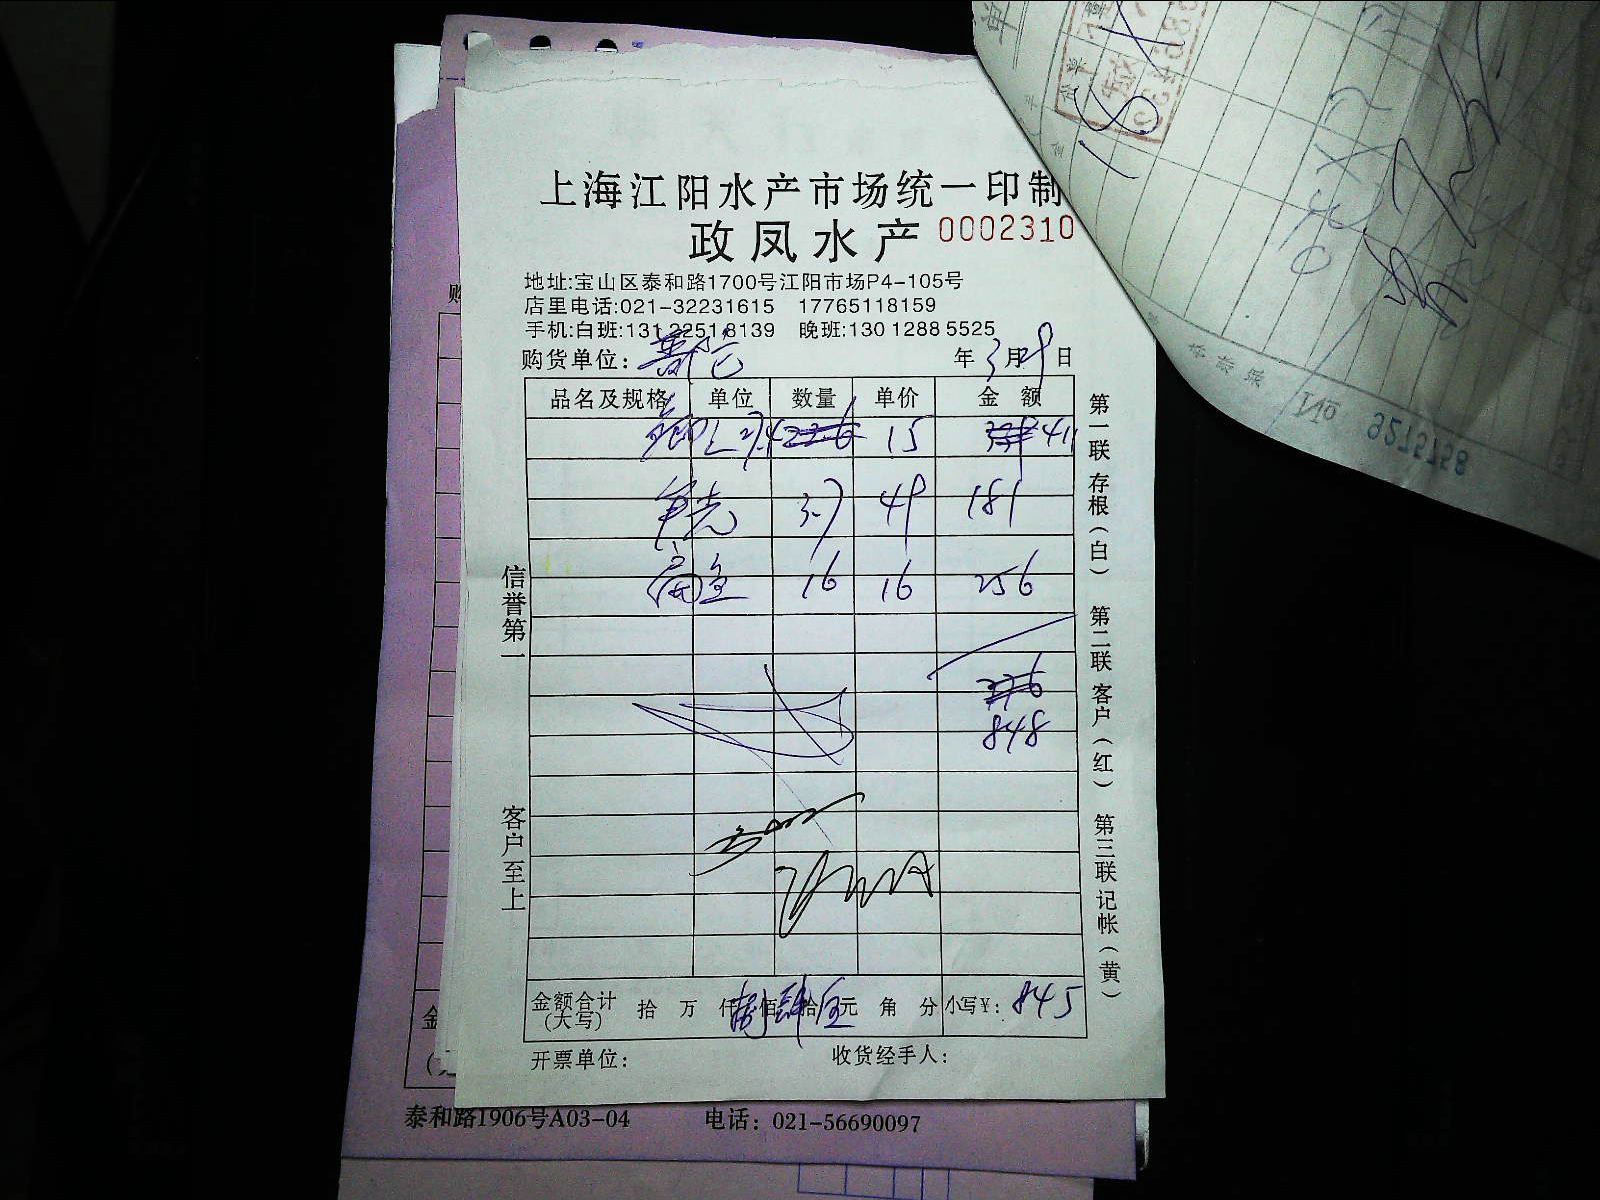 上海江阳水产市场统一印制
政凤水产 0002310
地址:宝山区泰和路1700号江阳市场P4-105号
店里电话:021-32231615 17765118159
手机:白班:131 2251 8139 晚班:130 1288 5525
购货单位: 年 3月29日
品名及规格 单位 数量 单价 金额
27.4 15 411
3.7 49 181
扁鱼 16 16 256
848
金额合计(大写) 拾 万 仟 捌佰肆拾伍元 角 分 小写¥: 845
开票单位: 收货经手人:
信誉第一
客户至上
第一联存根(白) 第二联客户(红) 第三联记帐(黄)
泰和路1906号A03-04 电话: 021-56690097
No 9275758